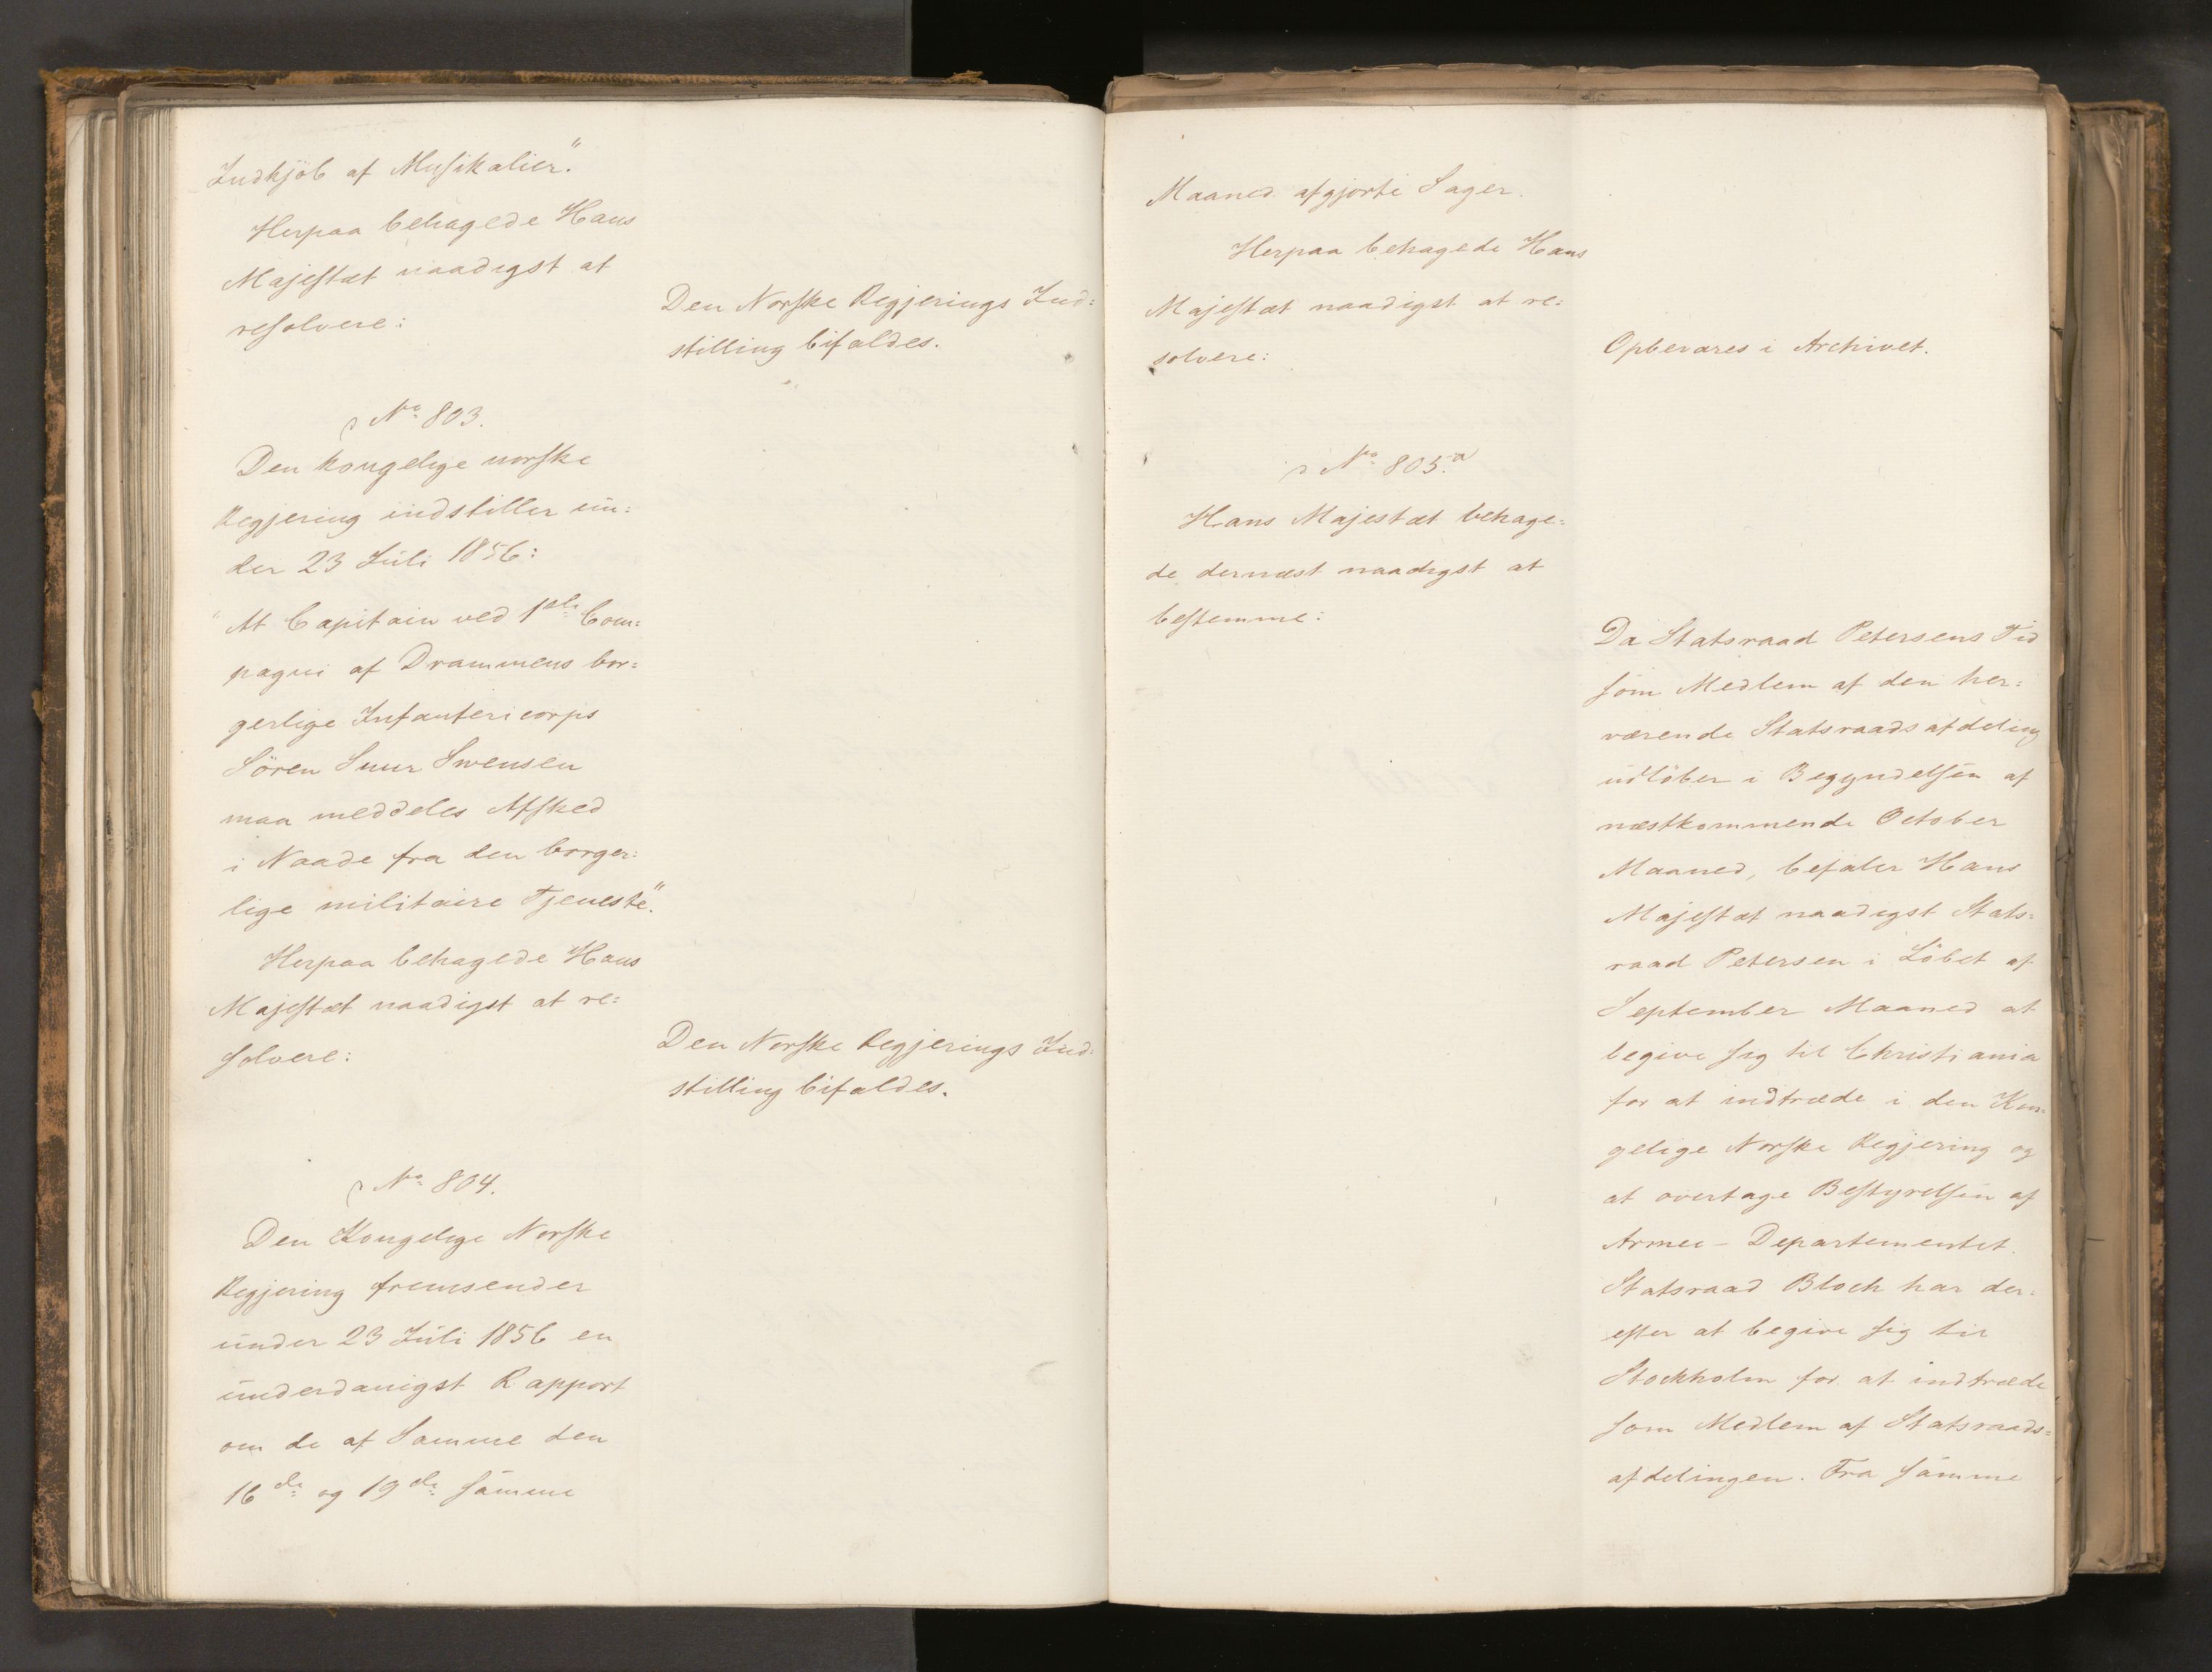 Indkjöb af Musikalier".
Herpaa behagede Hans
Majestæt naadigst at
resolvere:
Den Norske Regjerings Ind=
stilling bifaldes.
No 803.
Den kongelige norske
Regjering indstiller un=
der 23 Juli 1856:
"At Capitain ved 1ste Com=
pagni af Drammens bor=
gerlige Infantericorps
Sören Suur Swensen
maa meddeles Afsked
i Naade fra den borger=
lige militaire Tjeneste".
Herpaa behagede Hans
Majestæt naadigst at re=
solvere:
Den Norske Regjerings Ind=
stilling bifaldes.
No 804.
Den Kongelige Norske
Regjering fremsender
under 23 Juli 1856 en
underdanigst Rapport
om de af Samme den
16de og 19de samme
Maaned afgjorte Sager.
Herpaa behagede Hans
Majestæt naadigst at re=
solvere:
Opbevares i Archivet.
No 805.a
Hans Majestæt behage=
de dernæst naadigst at
bestemme:
Da Statsraad Petersens Tid
som Medlem af den her=
værende Statsraadsafdeling
udlöber i Begyndelsen af
næstkommende October
Maaned, befaler Hans
Majestæt naadigst Stats=
raad Petersen i Löbet af
September Maaned at
begive sig til Christiania
for at indtræde i den Kon=
gelige Norske Regjering og
at overtage Bestyrelsen af
Armee-Departementet.
Statsraad Bloch har der=
efter at begive sig til
Stockholm for at indtræde
som Medlem af Statsraads=
afdelingen. Fra samme